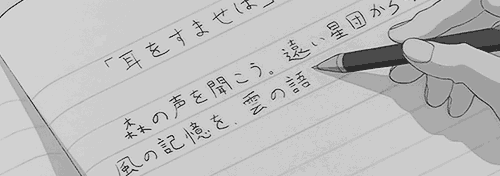 「耳をすませば」
森の声を聞こう。遠い星団から
風の記憶を、雲の語